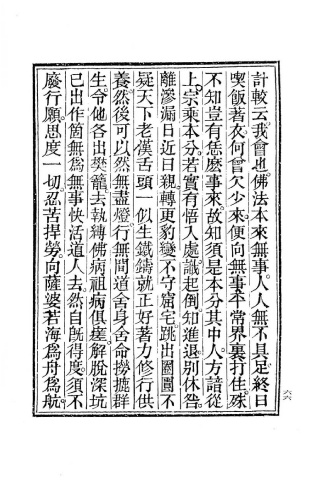 計較云我會也佛法本來無事人人無不具足終日
喫飯著衣何曾欠少來便向無事平常界裏打住殊
不知豈有恁麽事來故知須是本分其中人方諳從
上宗乘本分若實有悟入處識起倒知進退別休咎
離滲漏日近日親轉更豹變不守窟宅跳出圈圚不
疑天下老漢舌頭一似生鐵鑄就正好著力修行供
養然後可以然無盡燈行無間道舍身舍命撈摝群
生令他各出樊籠去執縛佛病祖病俱瘥解脫深坑
已出作箇無為無事快活道人去然自旣得度須不
廢行願思度一切忍苦捍勞向薩婆若海爲舟爲航
六六